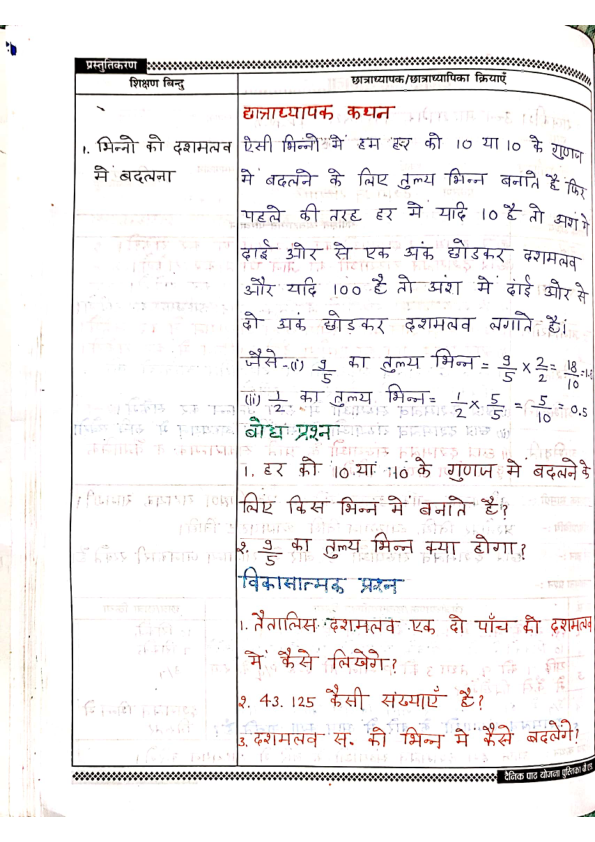 प्रस्तुतिकरण
शिक्षण बिन्दु
छात्राध्यापक/छात्राध्यापिका क्रियाएँ
छात्राध्यापक कथन
1. भिन्नो को दशमलव
मे बदलना
ऐसी भिन्नो में हम हर को 10 या 10 के गुणज
मे बदलने के लिए तुल्य भिन्न बनाते है फिर
पहले की तरह हर मे यदि 10 है तो अशं मे
दाई ओर से एक अंक छोडकर दशमलव
और यदि 100 है तो अंश में दाई ओर से
दो अकं छोडकर दशमलव लगाते है।
जैसे-(i) 9/5 का तुल्य भिन्न = 9/5 × 2/2 = 18/10 =
(ii) 1/2 का तुल्य भिन्न = 1/2 × 5/5 = 5/10 = 0.5
बोध प्रश्न
1. हर को 10 या 10 के गुणज मे बदलने के
लिए किस भिन्न मे बनाते है?
2. 9/5 का तुल्य भिन्न क्या होगा?
विकासात्मक प्रश्न
1. तैतालिस दशमलव एक दो पाँच को दशमलव
में कैसे लिखेगे?
2. 43.125 कैसी संख्याएँ है?
3. दशमलव स. को भिन्न मे कैसे बदलेंगे?
दैनिक पाठ योजना पुस्तिका